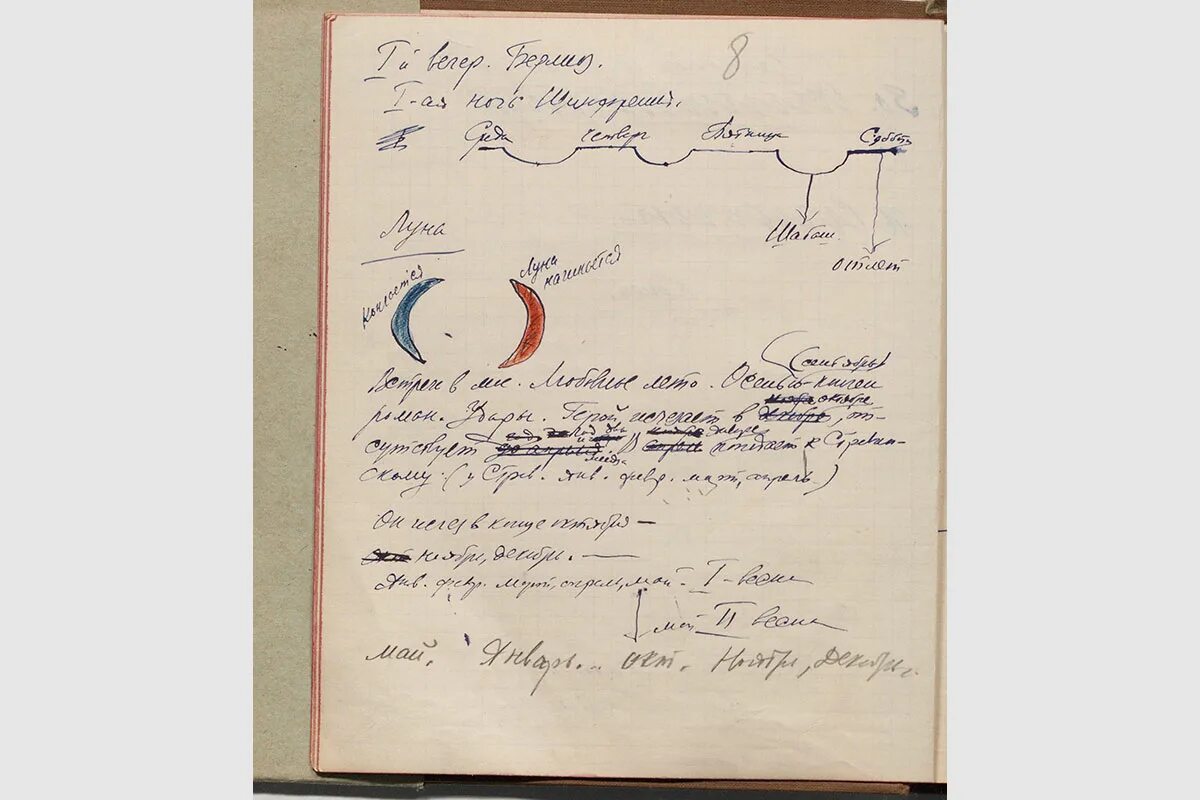 8
I й вечер. Берлиоз.
I-ая ночь Шизофрения.
Среда четверг Пятница Суббота
Шабаш.
отлет
Луна
Кончается
Луна начинается
(сентябрь)
Встреч в мае. Любовные лето. Осенью книгой
октябре
роман. Удары. Герой исчезает в от-
год два январе
сутствует попадает к Стравин-
скому. (у Стрв. янв. февр. март, апрель.)
Он исчез в конце октября —
ноябрь, декабрь. —
Янв. февр. март, апрель, май - I - весна
май II весна
май. Январь... окт. Ноябрь, декабрь.